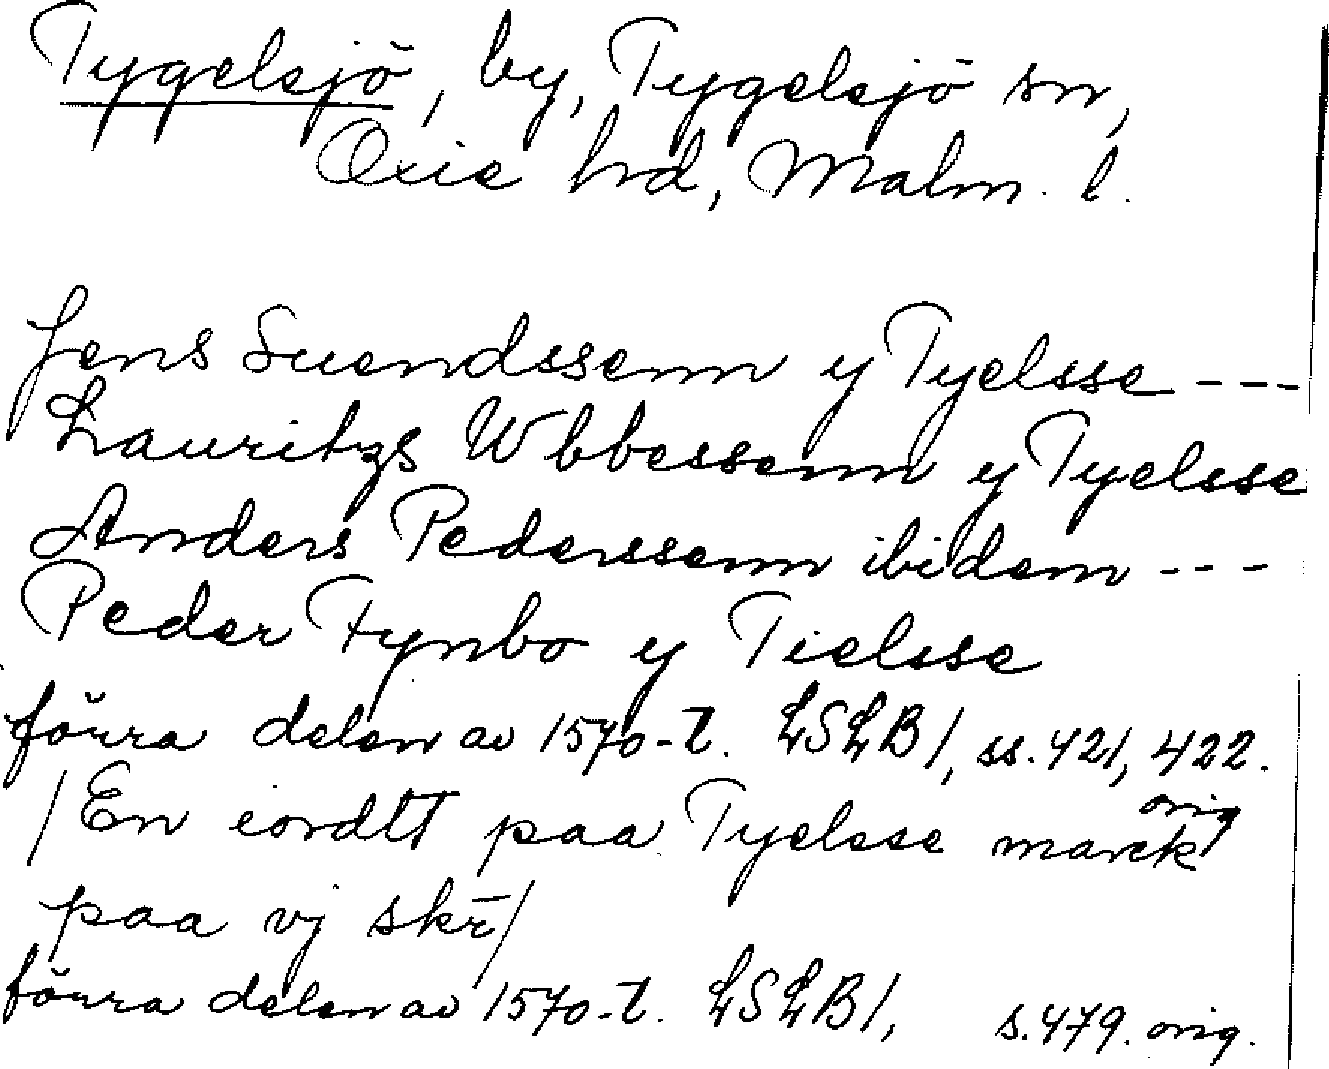 Tygelsjö, by, Tygelsjö sn,
Oxie hd, Malm. l.
Jens Suendssenn y Tyelsse ---
Lauritzs Wbbessenn y Tyelsse
Anders Pederssenn ibidem ---
Peder Fynbo y Tielsse
förra delen av 1570-t. LSLB1, ss. 421, 422.
orig
/En iordtt paa Tyelsse marck
paa vj skr̄/
förra delen av 1570-t. LSLB1, s. 479. orig.